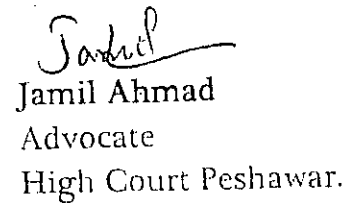 Jamil
Jamil Ahmad
Advocate
High Court Peshawar.